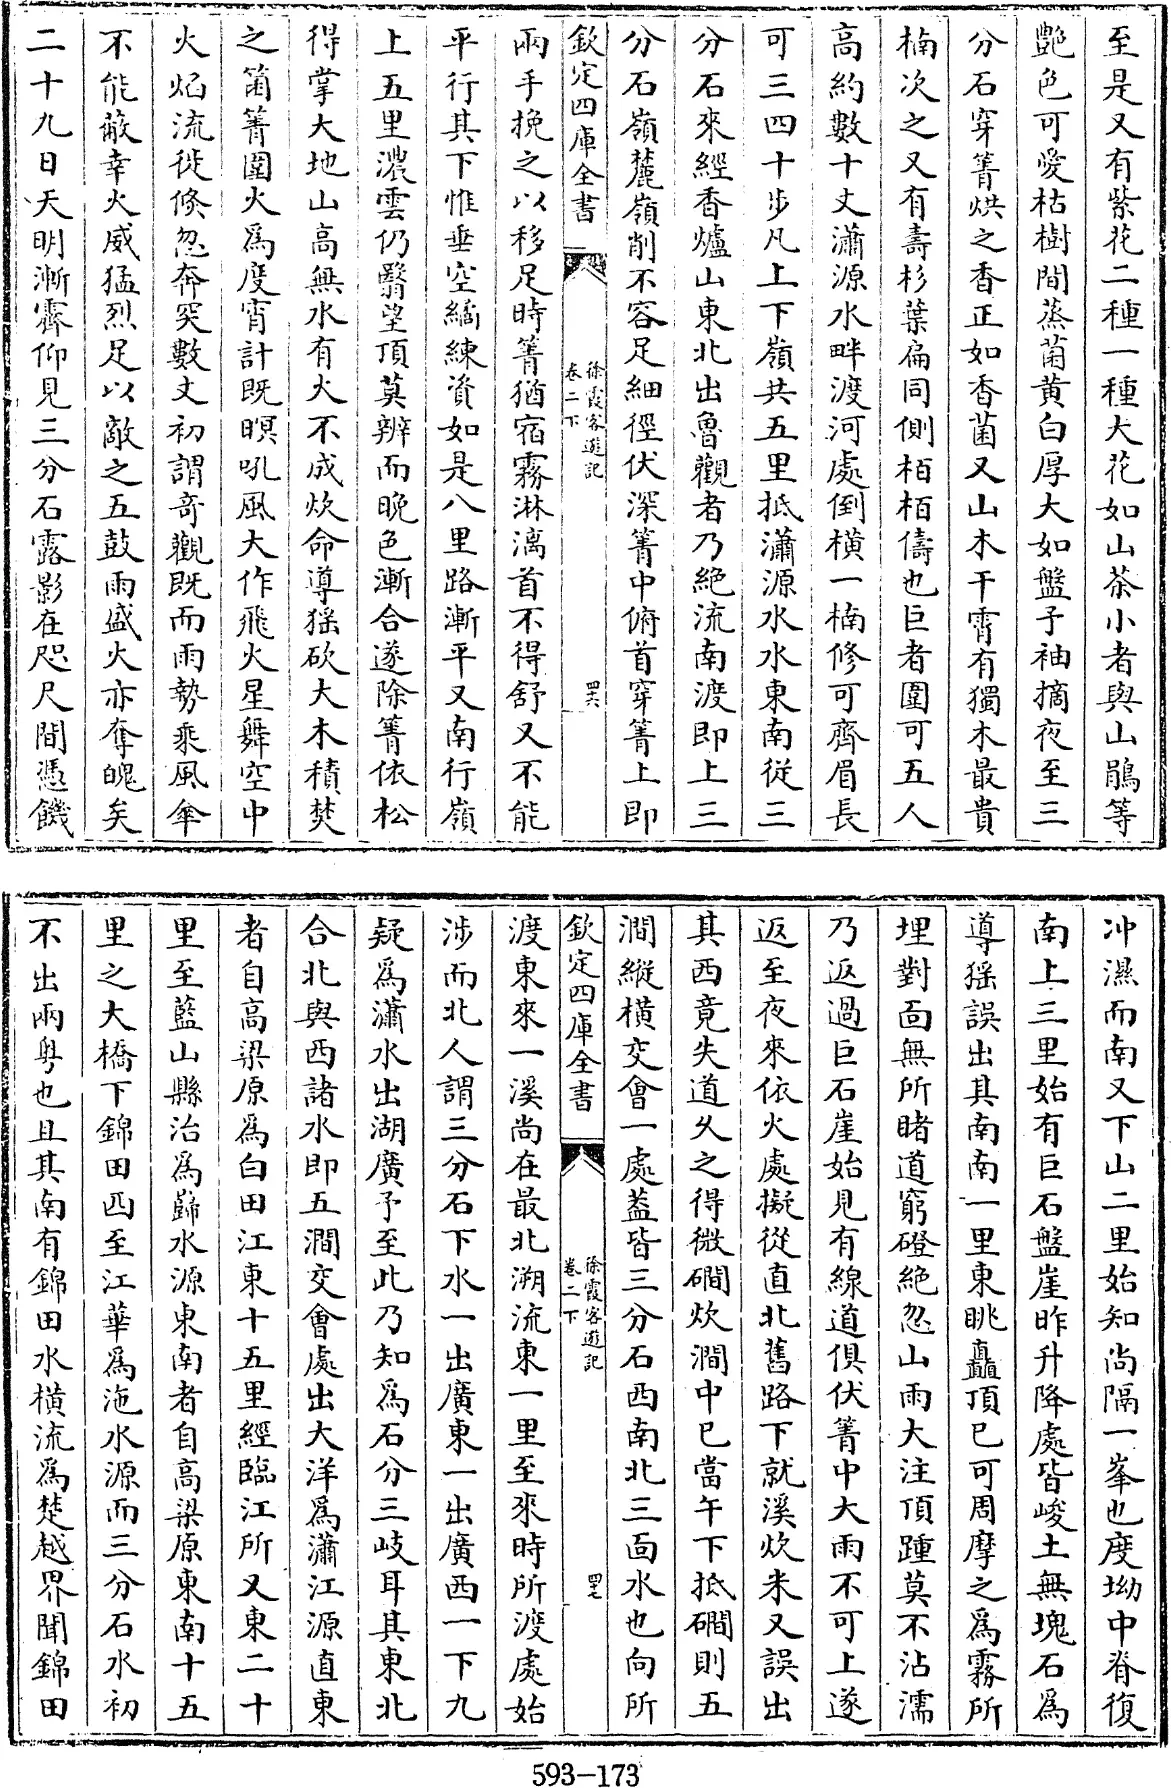 至是又有紫花二種一種大花如山茶小者與山鵑等
艷色可愛枯樹間蒸菌黄白厚大如盤予袖摘夜至三
分石穿箐烘之香正如香菌又山木干霄有獨木最貴
楠次之又有壽杉葉扁同側栢栢儔也巨者圍可五人
高約數十丈瀟源水畔渡河處倒横一楠修可齊眉長
可三四十步凡上下嶺共五里抵瀟源水水東南從三
分石來經香爐山東北出魯觀者乃絶流南渡即上三
分石嶺麓嶺削不容足細徑伏深箐中俯首穿箐上即
欽定四庫全書
徐霞客遊記
卷二下
四六
兩手挽之以移足時箐猶宿霧淋漓首不得舒又不能
平行其下惟垂空緬練資如是八里路漸平又南行嶺
上五里濃雲仍翳望頂莫辨而晚色漸合遂除箐依松
得掌大地山高無水有火不成炊命導猺砍大木積焚
之箘箐圍火爲度宵計既暝吼風大作飛火星舞空中
火焰流徙倏忽奔突數丈初謂奇觀既而雨勢乘風傘
不能蔽幸火威猛烈足以敵之五鼓雨盛火亦奪魄矣
二十九日天明漸霽仰見三分石露影在咫尺間憑饑
冲濕而南又下山二里始知尚隔一峯也度坳中脊復
南上三里始有巨石盤崖昨升降處皆峻土無塊石爲
導猺誤出其南南一里東眺矗頂已可周摩之爲霧所
埋對面無所睹道窮磴絶忽山雨大注頂踵莫不沾濡
乃返過巨石崖始見有線道俱伏箐中大雨不可上遂
返至夜來依火處擬從直北舊路下就溪炊米又誤出
其西竟失道久之得微磵炊澗中已當午下抵磵則五
澗縱横交會一處葢皆三分石西南北三面水也向所
欽定四庫全書
徐霞客遊記
卷二下
四七
渡東來一溪尚在最北溯流東一里至來時所渡處始
涉而北人謂三分石下水一出廣東一出廣西一下九
疑爲瀟水出湖廣予至此乃知爲石分三岐耳其東北
合北與西諸水即五澗交會處出大洋爲瀟江源直東
者自高梁原爲白田江東十五里經臨江所又東二十
里至藍山縣治爲歸水源東南者自高梁原東南十五
里之大橋下錦田西至江華爲沲水源而三分石水初
不出兩粤也且其南有錦田水横流爲楚越界聞錦田
593-173